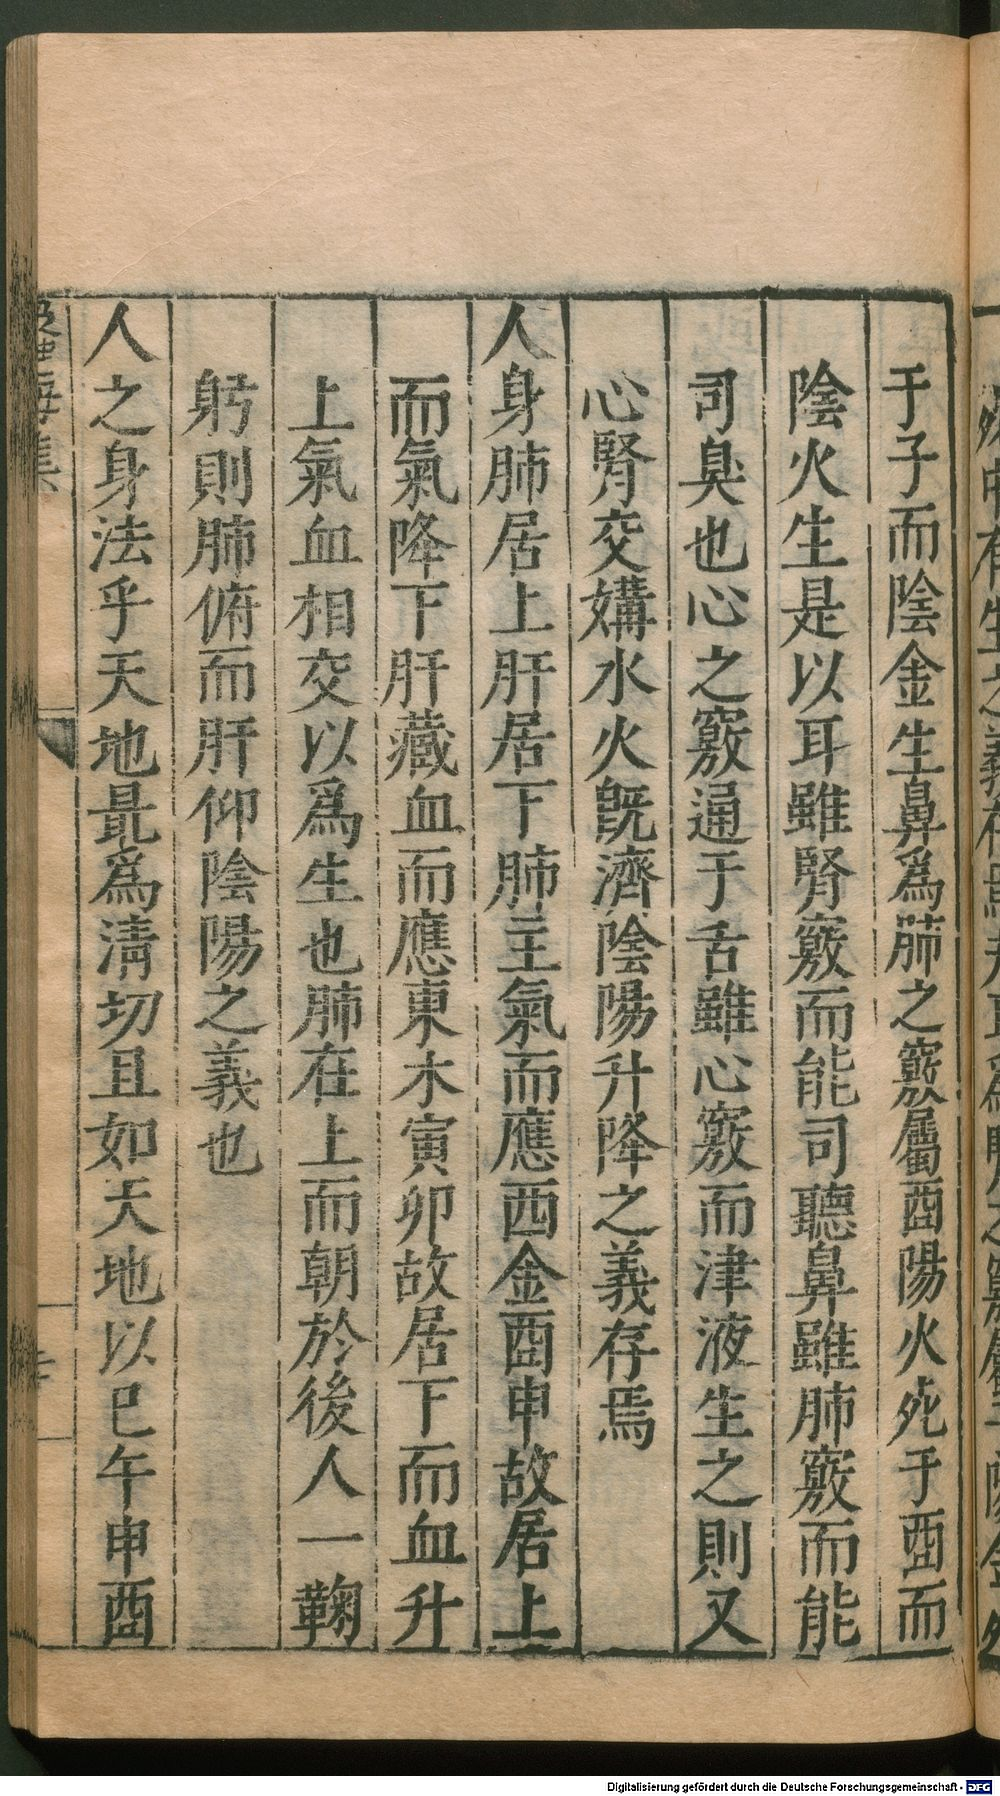 于子而陰金生鼻爲肺之竅屬酉陽火死于酉而
陰火生是以耳雖腎竅而能司聽鼻雖肺竅而能
司臭也心之竅通于舌雖心竅而津液生之則又
心腎交媾水火旣濟陰陽升降之義存焉
人身肺居上肝居下肺主氣而應西金酉申故居上
而氣降下肝藏血而應東木寅卯故居下而血升
上氣血相交以爲生也肺在上而朝於後人一鞠
躬則肺俯而肝仰陰陽之義也
人之身法乎天地最爲淸切且如天地以巳午申酉
Digitalisierung gefördert durch die Deutsche Forschungsgemeinschaft - DFG